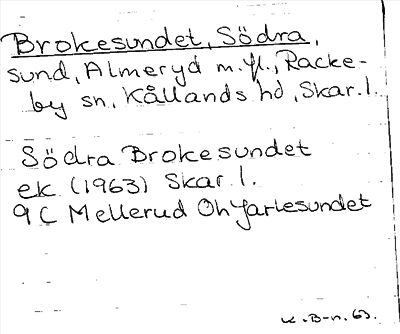 Brokesundet, Södra,
sund, Almeryd m.fl., Racke-
by sn, Kållands hd, Skar. l.
Södra Brokesundet
ek. (1963) Skar. l.
9 C Mellerud
K. B-n. 63.